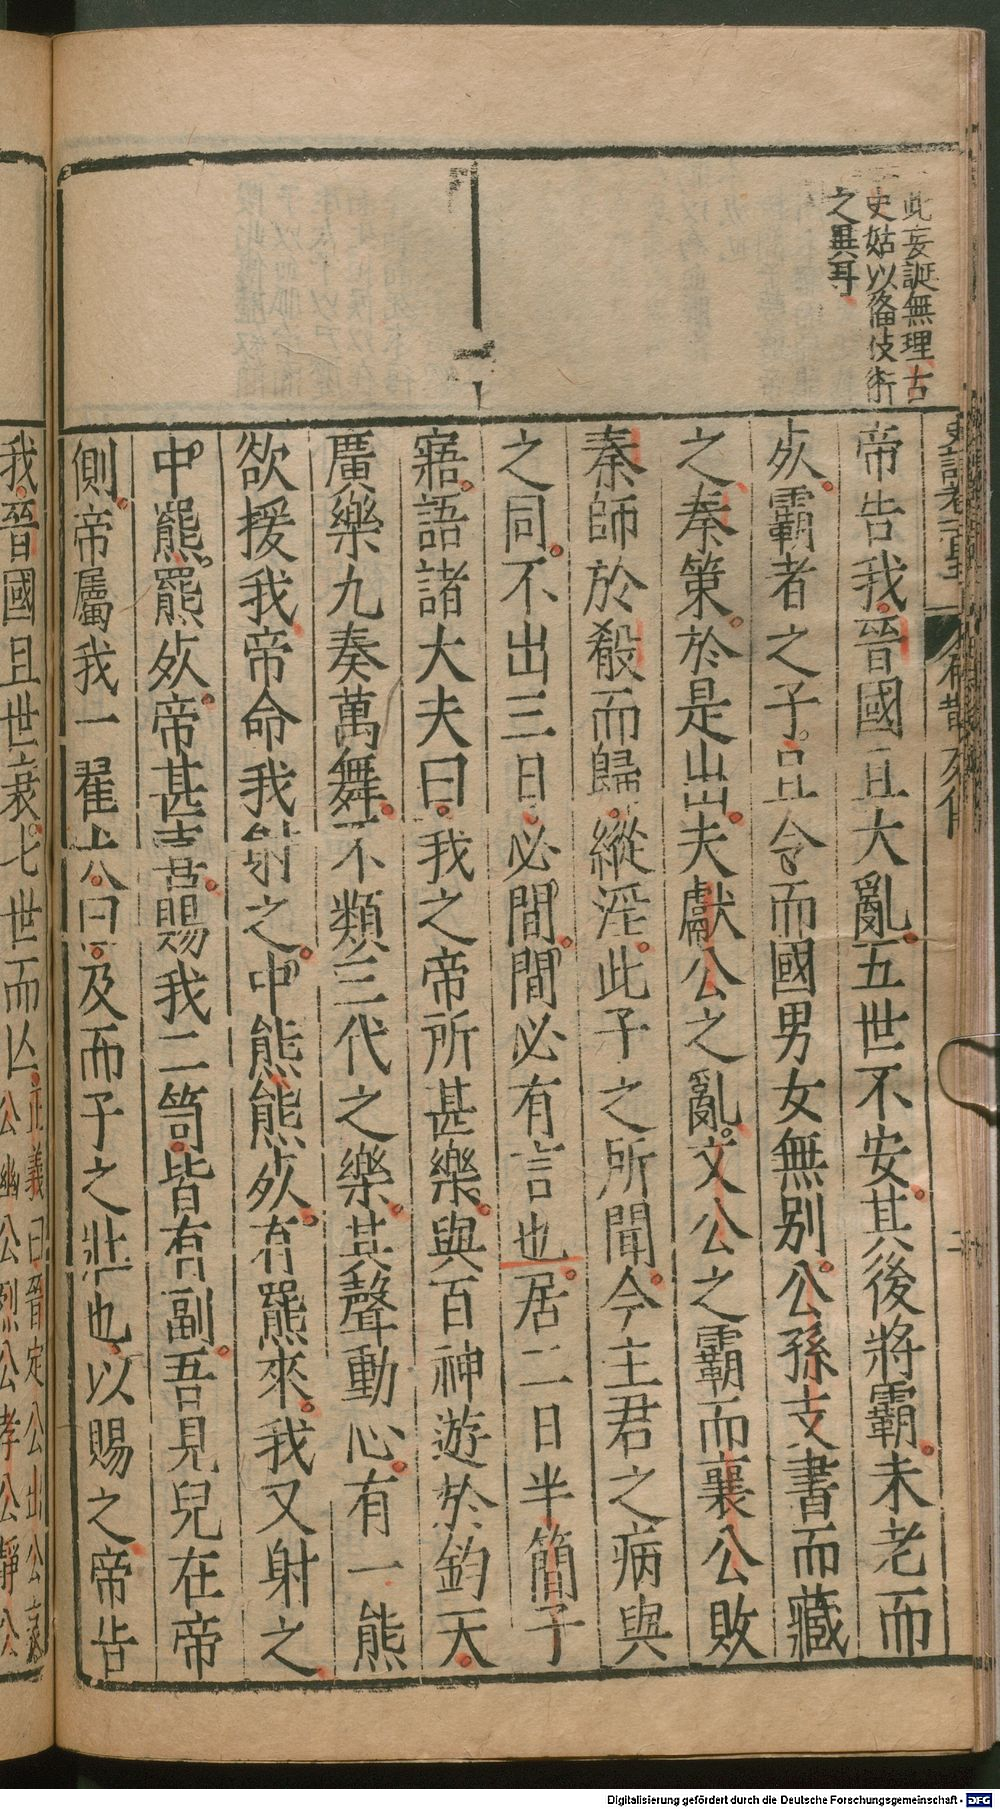 此妄誕無理古
史姑以備伎術
之異耳
帝告我晉國且大亂五世不安其後將霸未老而
死霸者之子且令而國男女無别公孫支書而藏
之秦策於是出夫獻公之亂文公之霸而襄公敗
秦師於殽而歸縱淫此子之所聞今主君之病與
之同不出三日必間間必有言也居二日半簡子
寤語諸大夫曰我之帝所甚樂與百神遊於鈞天
廣樂九奏萬舞不類三代之樂其聲動心有一熊
欲援我帝命我射之中熊熊死有羆來我又射之
中羆羆死帝甚喜賜我二笥皆有副吾見兒在帝
側帝屬我一翟犬曰及而子之壯也以賜之帝告
我晉國且世衰七世而亾
正義曰晉定公出公哀
公幽公烈公孝公靜公
Digitalisierung gefördert durch die Deutsche Forschungsgemeinschaft - DFG